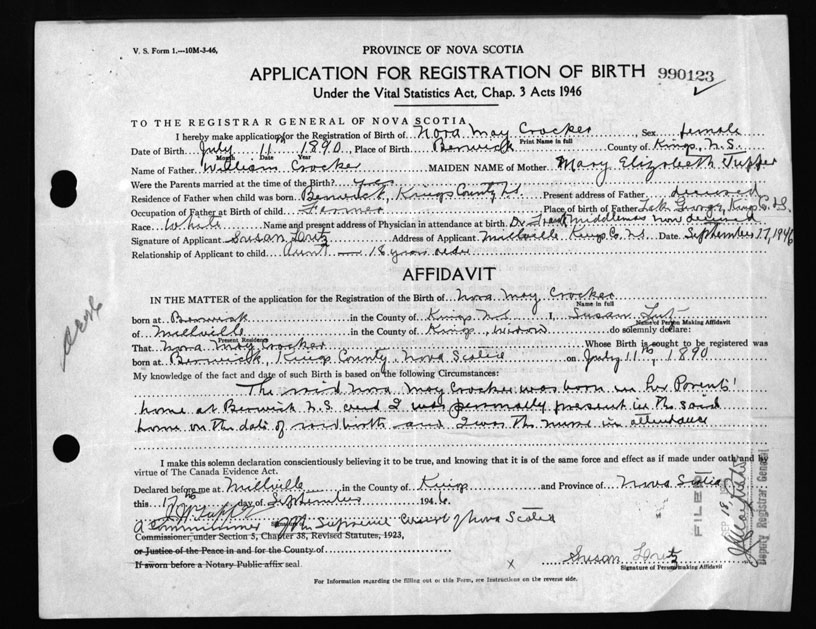 V. S. Form 1.—10M-3-46,
PROVINCE OF NOVA SCOTIA
APPLICATION FOR REGISTRATION OF BIRTH 990123
Under the Vital Statistics Act, Chap. 3 Acts 1946
TO THE REGISTRAR GENERAL OF NOVA SCOTIA
I hereby make application for the Registration of Birth of Nora May Crocker Sex female
Print Name in full
Date of Birth July 11th 1890, Place of Birth Berwick County of Kings, N.S.
Month Date Year
Name of Father William Crocker MAIDEN NAME of Mother Mary Elizabeth Tupper
Were the Parents married at the time of the Birth? yes
Residence of Father when child was born Berwick, Kings County N.S. Present address of Father deceased
Occupation of Father at Birth of child Farmer Place of birth of Father George, Kings Co. N.S.
Race White Name and present address of Physician in attendance at birth Dr. Middlemas now deceased
Signature of Applicant Susan Lutz Address of Applicant Millville Kings Co. N.S. Date September 17, 1946
Relationship of Applicant to child Aunt — 18 years older
AFFIDAVIT
IN THE MATTER of the application for the Registration of the Birth of Nora May Crocker
Name in full
born at Berwick in the County of Kings N.S. I, Susan Lutz
Name of Person Making Affidavit
of Millville in the County of Kings, widow do solemnly declare:
Present Residence
That Nora May Crocker Whose Birth is sought to be registered was
born at Berwick, Kings County Nova Scotia on July 11th, 1890
My knowledge of the fact and date of such Birth is based on the following Circumstances:
The said Nora May Crocker was born in her Parents'
home at Berwick N.S. and I was personally present in the said
home on the date of said birth and I was the nurse in attendance
I make this solemn declaration conscientiously believing it to be true, and knowing that it is of the same force and effect as if made under oath and by
virtue of The Canada Evidence Act.
Declared before me at Millville in the County of Kings and Province of Nova Scotia
this 17th day of September 1946
A Commissioner of the Supreme Court of Nova Scotia
Commissioner, under Section 3, Chapter 38, Revised Statutes, 1923,
or Justice of the Peace in and for the County of
If sworn before a Notary Public affix seal.
X Susan Lutz
Signature of Person making Affidavit
For Information regarding the filling out of this Form, see Instructions on the reverse side.
FILED
SEP 18
Deputy Registrar General